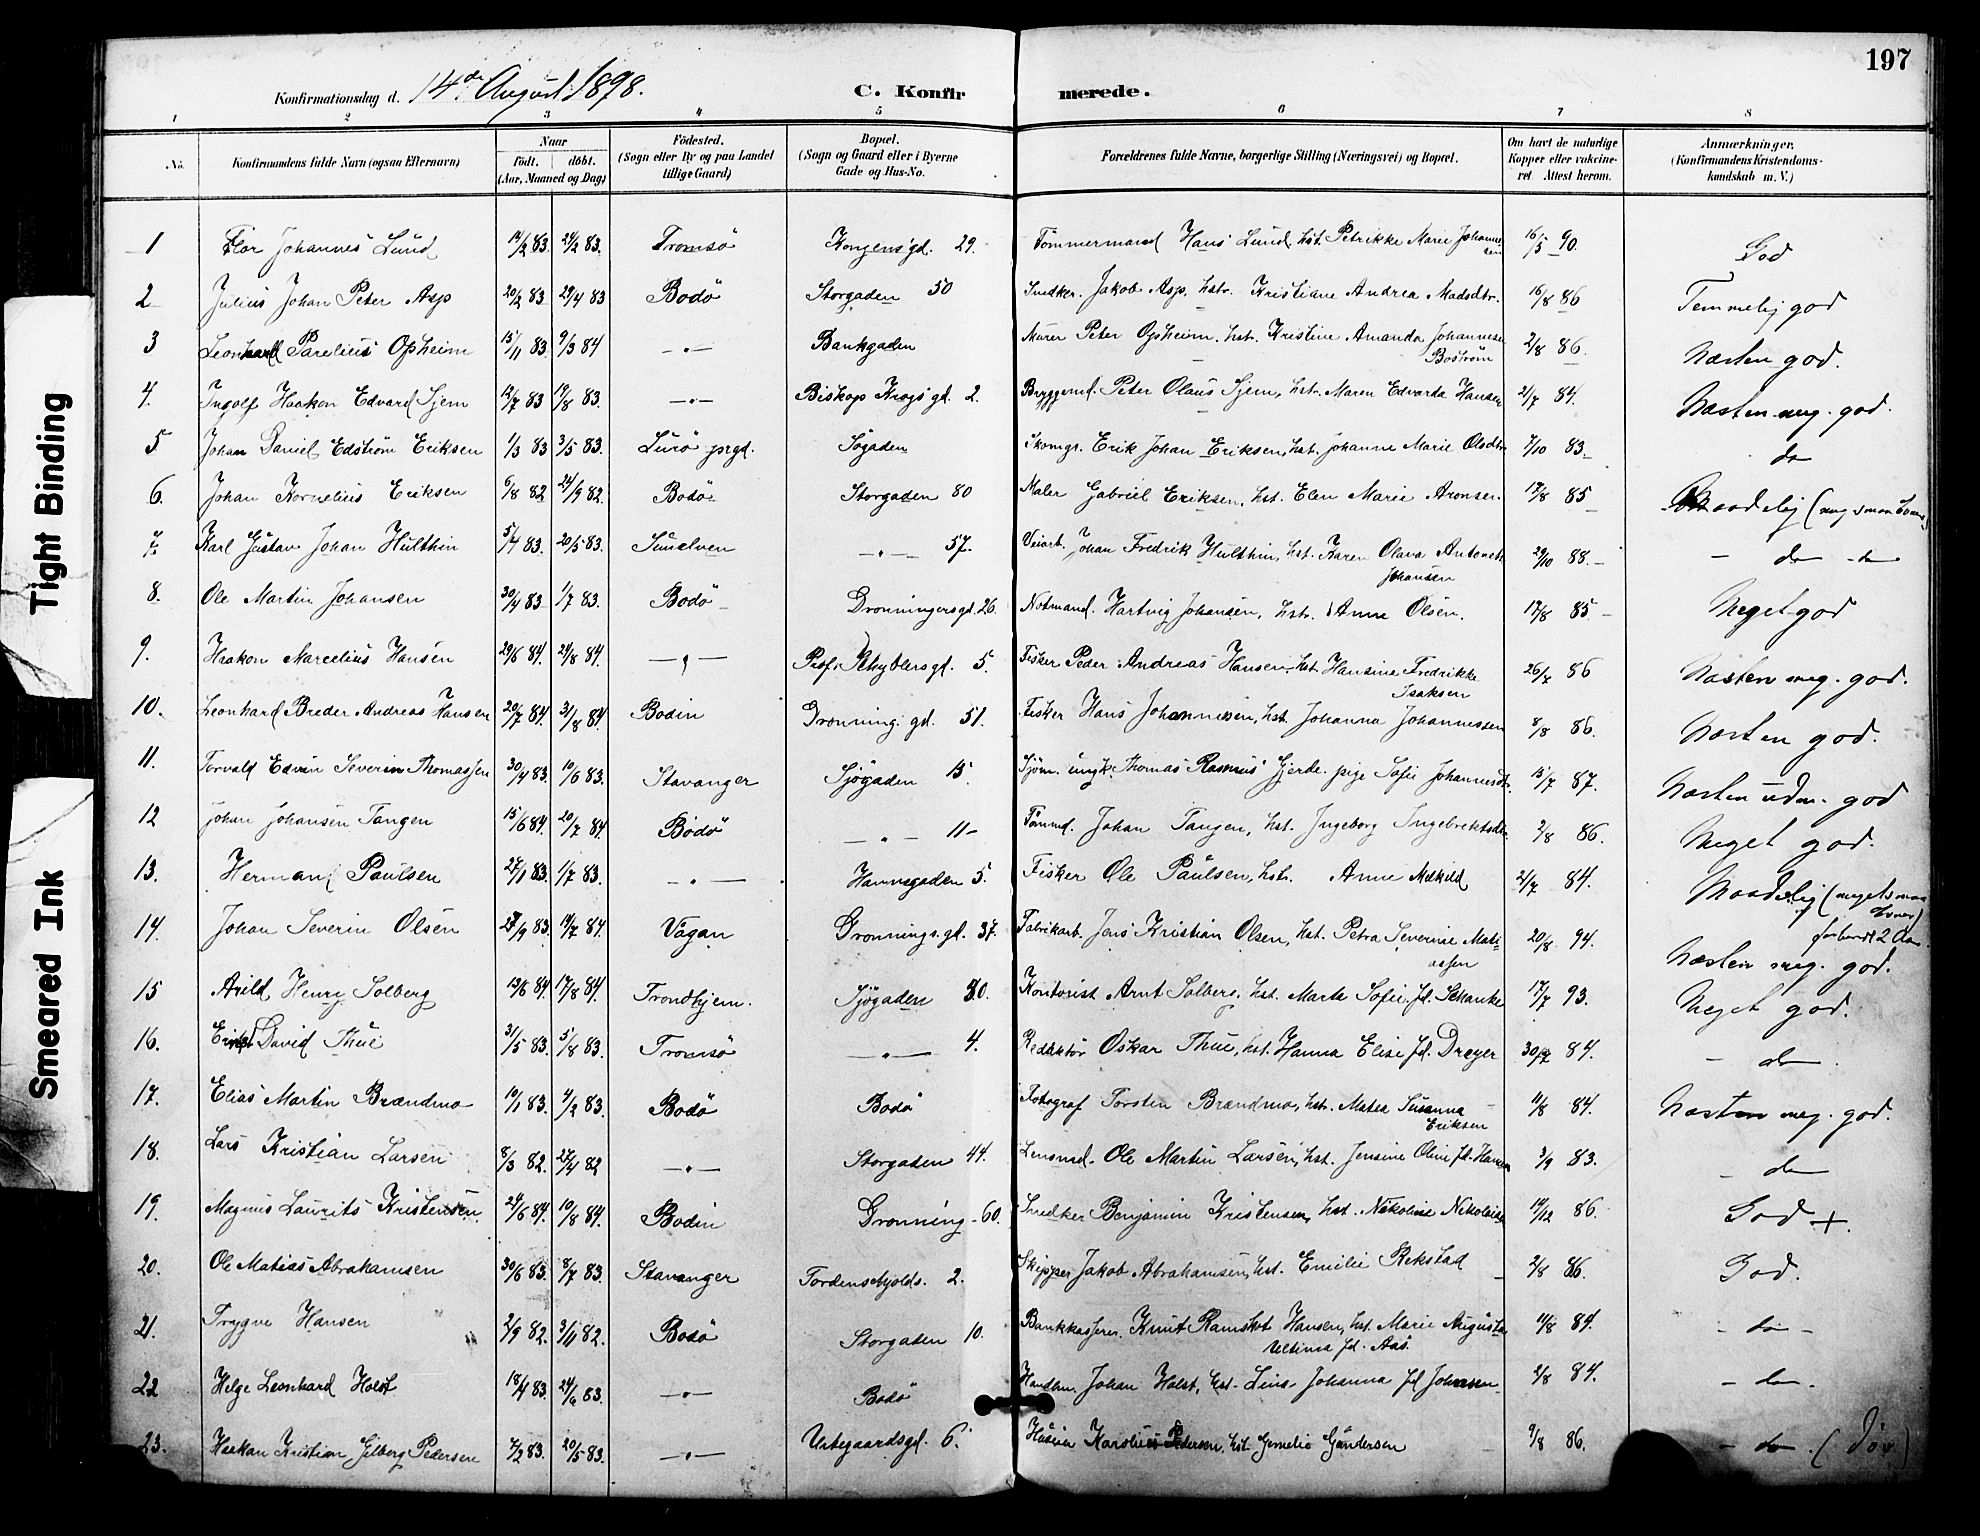 197
Konfirmationsdag d. 14de August 1898. C. Konfirmerede.
1 2 3 4 5 6 7 8
No. Konfirmandens fulde Navn (ogsaa Efternavn) Naar født. døbt. (Aar, Maaned og Dag) Fødested. (Sogn eller By og paa Landet tillige Gaard) Bopæl. (Sogn og Gaard eller i Byerne Gade og Hus-No. Forældrenes fulde Navne, borgerlige Stilling (Næringsvei) og Bopæl. Om havt de naturlige Kopper eller vakcineret Attest herom. Anmærkninger. (Konfirmandens Kristendomskundskab m. V.)
1 Johannes Lund 12/2 83. 24/3 83. Tromsö Kongensgd. 29. Tømmermand Hans Lund, hst. Petrikke Marie Johannesen 16/5 90. God
2 Julius Johan Peter Asp 20/2 83 29/4 83 Bodö Storgaden 50 Snedker. Jakob Asp, hstr. Kristiane Andrea Madsdtr. 16/8 86 Temmelig god
3 Leonhard Parelius Opheim 15/11 83. 9/3 84 -„- Bankgaden Murer Peter Opheim. hstr. Kristine Amanda Johannesen Boström 2/8 86. Næsten god.
4. Ingolf Haakon Edvard Sjem 12/7 83 19/8 83. -„- Biskop Krogs gd. 2. Bryggemd. Peter Olaus Sjem, hst. Maren Edvarda Hansen 21/7 84. Næsten meg. god.
5 Johan Daniel Edström Eriksen 1/3 83 3/5 83. Lurö prgd. Søgaden Skomgr. Erik Johan Eriksen, hst. Johanne Marie Olsdtr 7/10 83. do
6. Johan Kornelius Eriksen 6/8 82 24/9 82. Bodö Storgaden 80 Maler Gabriel Eriksen, hst. Elen Marie Aronsen. 17/8 85 Maadelig
7. Karl Gustav Johan Hulthin 5/4 83. 20/5 83. Sunelven -„- 57. Veiarb. Johan Fredrik Hulthin, hst. Karen Olava Antonette Johansen 29/10 88. - do - do
8. Ole Martin Johansen 30/4 83 1/7 83. Bodö Dronningensgd. 26. Notmand. Hartvig Johansen, hstr. Anna Olsen. 17/8 85 Meget god
9. Haakon Marcelius Hansen 29/6 84. 24/8 84. -„- Prof. Schyttersgd. 5. Fisker Peder Andreas Hansen, hst. Hansine Fredrikke Isaksen 26/7 86 Næsten meg. god.
10. Leonhard Breder Andreas Hansen 20/7 84. 31/8 84. Bodin Dronning. gd. 51. Fisker Hans Johannessen, hst. Johanna Johannessen 8/8 86. Næsten god.
11. Torvald Edvin Severin Thomassen 30/4 83. 10/6 83. Stavanger Sjögaden 15. Sjöm. ungk. Thomas Rasmus Gjerde. pige Sofie Johannesdtr. 15/7 87. Næsten udm. god
12 Johan Johansen Tangen 15/6 84. 20/7 84 Bodö -„- 11- Tömmd. Johan Tangen, hst. Ingeborg Ingebrektsdtr. 2/8 86. Meget god.
13. Herman Paulsen 27/1 83. 1/7 83. -„- Havnegaden 5. Fisker Ole Paulsen, hstr. Anne Melkild 21/7 84. Maadelig
14. Johan Severin Olsen 27/9 83. 19/7 84. Vågan Dronnings.gd. 37. Fabrikarb. Jens Kristian Olsen, hst. Petra Severine Matiassen 20/8 94. Næsten meg. god.
15 Arild Henry Solberg 17/8 84. Trondhjem. Sjögaden 30. Kontorist Arnt Solberg, hst. Marta Sofie fd. Schanke 17/7 93. Meget god.
16. Ernst David Thue 31/5 83. 5/8 83. Tromsö -„- 4. Redaktör Oskar Thue, hst. Hanna Elise fd. Dreyer 30/7 84. - do
17. Elias Martin Brændmo 10/1 83. 4/3 83. Bodö Bodö Fotograf Torstin Brændmo, hstr. Matea Susanna Eriksen 11/8 84. Næsten meg. god.
18. Lars Kristian Larsen 8/3 82. 27/4 82 -„- Storgaden 44. Lensmd. Ole Martin Larsen, hst. Jensine Oline fd. Hansen 3/9 83. - do
19. Magnus Laurits Kristensen 24/6 84. 10/8 84. Bodin Dronning - 60. Snedker Benjamin Kristensen, hst. Nikoline Nikolaisen 14/12 86. God +.
20. Ole Matias Abrahamsen 30/6 83. 8/7 83. Stavanger Tordenskjolds. 2. Skipper Jakob Abrahamsen, hst. Emilie Rekstad 2/8 86. God.
21. Trygve Hansen 2/9 82. 3/11 82. Bodö Storgaden 10. Bankkasserer. Knut Ramskot Hansen, hst. Marie Augusta Ultima fd. Aas. 11/8 84. - do -
22 Helge Leonhard Holst 18/4 83. 24/6 83 -„- Bodö Handlm. Johan Holst, hst. Lina Johanna fd Johansen 2/8 84. - do -
23. Haakon Kristian Gilberg Pedersen 7/2 83. 20/5 83. -„- 6. Karolius Pedersen, hst. Gundersen 9/8 86. - do - (Döv)
Tight Binding
Smeared Ink